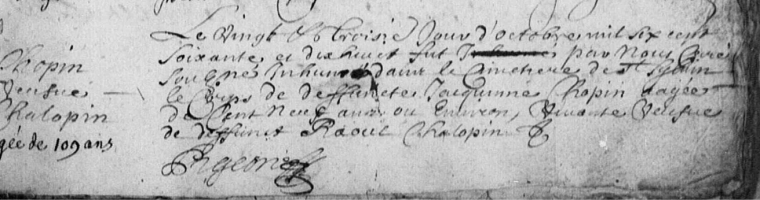 Chopin
veufve
Chalopin
gée de 109 ans
Le Vingt & troisie Jour d'octobre mil six cent
soixante et dixhuict fut par Nous Curé
soubsné Inhumé dans le Cimetiere de St
le Corps de deffuncte Jacquinne Chopin aagée
de Cent Neuf ans ou Environ, Vivante Veufve
de deffunct Raoul Chalopin
Pigeon